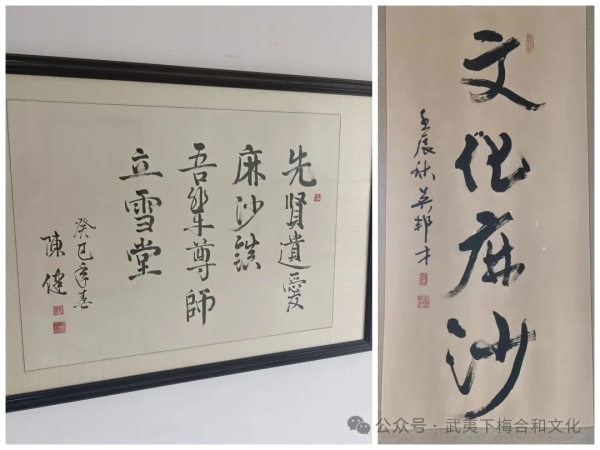 先賢遺愛
麻沙鎮
吾輩尊師
立雪堂
癸巳年春
陳健
文化麻沙
壬辰秋吴邦才
公众号·武夷下梅合和文化